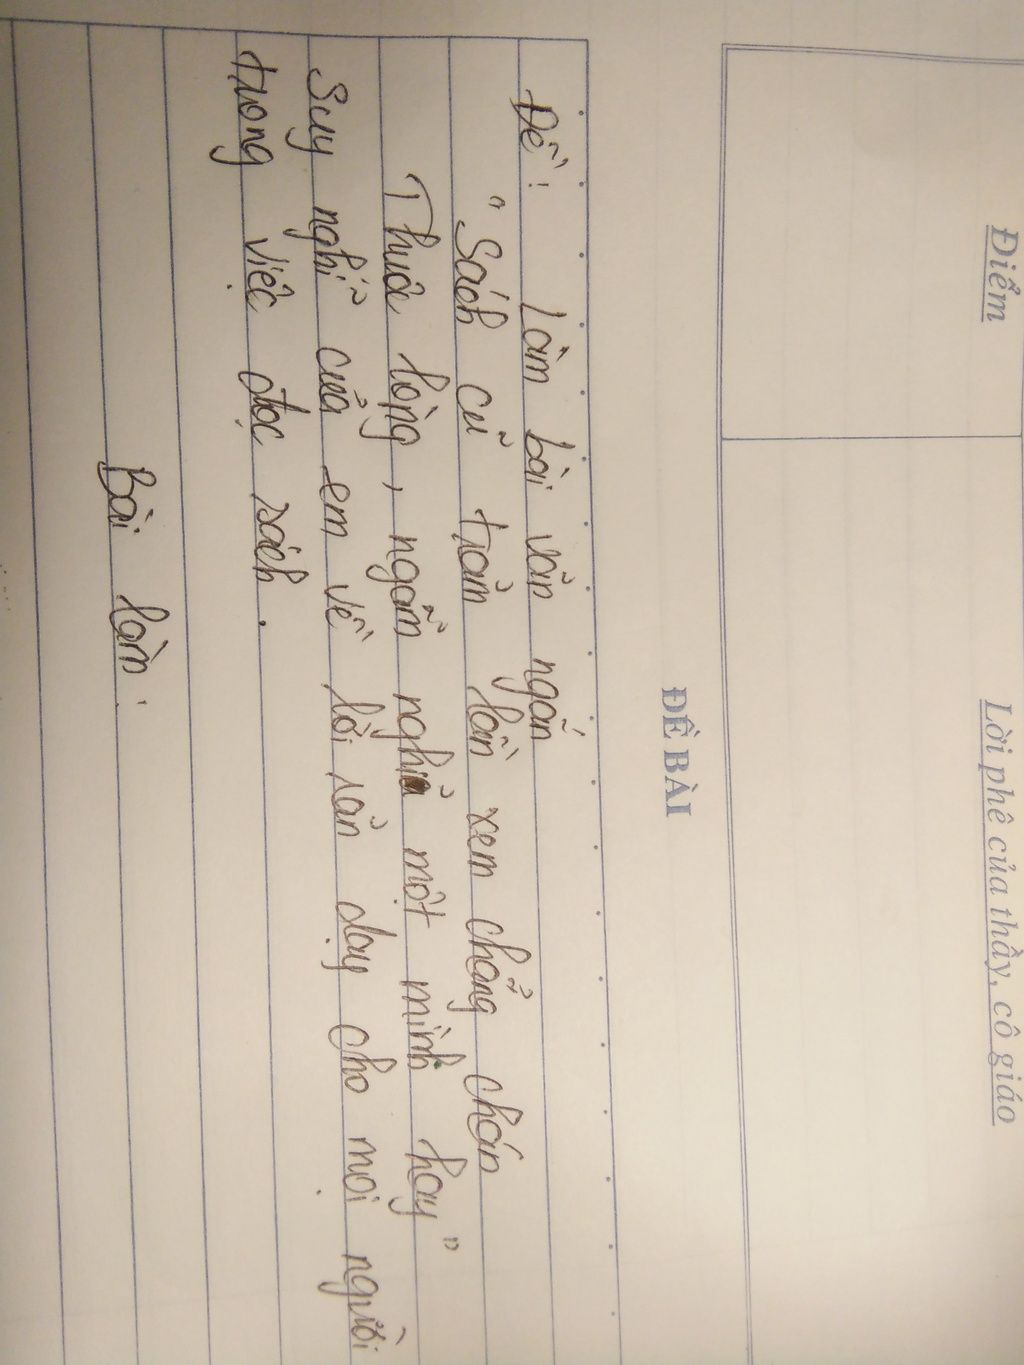 Điểm
Lời phê của thầy, cô giáo
ĐỀ BÀI
Đề: Làm bài văn ngắn
"Sách cũ trăm lần xem chẳng chán
Thuộc lòng, ngẫm nghĩ một mình hay"
Suy nghĩ của em về lời răn dạy cho mọi người
trong việc đọc sách.
Bài làm: